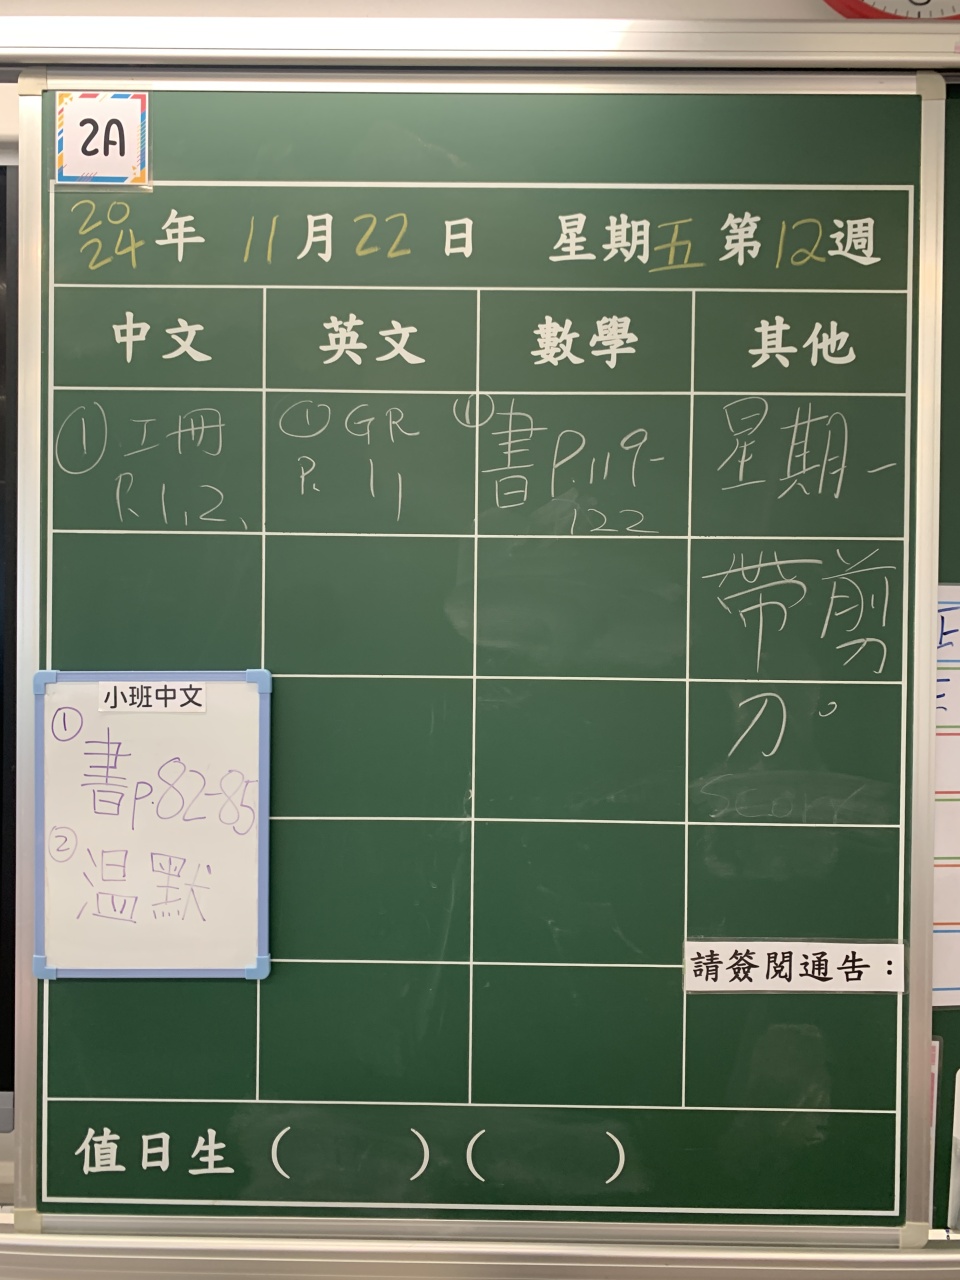 2A
2024年 11月22日 星期五第12週
中文 英文 數學 其他
① 工冊
P.1,2,
① GR
P. 11
① 書 P.119-
122
星期一
帶剪
刀。
小班中文
① 書p.82-85
② 溫默
請簽閱通告：
值日生（ ）（ ）